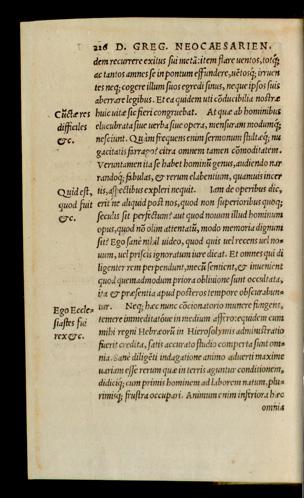 226 D. GREG. NEOCAESARIEN.
dem recurrere exitus sui metã: item flare uentos, totq́;
ac tantos amnes se in pontum effundere, uẽtosq́; irruen
tes neq; cogere illum suos egredi sinus, neque ipsos suis
aberrare legibus. Et ea quidem uti cõducibilia nostræ
huic uitæ sic fieri congruebat. At quæ ab hominibus
Cũctæ res
elucubrata siue uerba siue opera, mensuram modumq́;
difficiles
nesciunt. Quàm frequens enim sermonum
&c.
gacitatis farrago? citra omnem tamen cõmoditatem.
Veruntamen ita se habet hominũ genus, audiendo nar
randoq́; fabulas, & rerum elabentium, quamuis incer
Quid est,
tis, aspectibus expleri nequit. Iam de operibus dic,
quod fuit
erit ne aliquid post nos, quod non superioribus quoq;
&c.
seculis sit perfectum? aut quod nouum illud hominum
opus, quod nõ olim attentatũ, modo memoria dignum
sit? Ego sanè nihil uideo, quod quis uel recens uel no-
uum, uel priscis ignoratum iure dicat. Et omnes qui di
ligenter rem perpendunt, mecũ sentient, & inuenient
quod quemadmodum priora obliuione sunt occultata,
ita & præsentia apud posteros tempore obscurabun-
Ego Eccle-
tur. Neq; hæc nunc cõcionatorio munere fungens,
siastes fui
temere immeditatóue in medium affero: equidem cum
rex &c.
mihi regni Hebræorũ in Hierosolymis administratio
fuerit credita, satis accurato studio comperta sunt om-
nia. Sanè diligẽti indagatione animo aduerti maxime
uariam esse rerum quæ in terris aguntur conditionem,
didiciq́; cum primis hominem ad laborem natum, plu-
rimisq́; frustra occupari. Animum enim instriora hæc
omnia